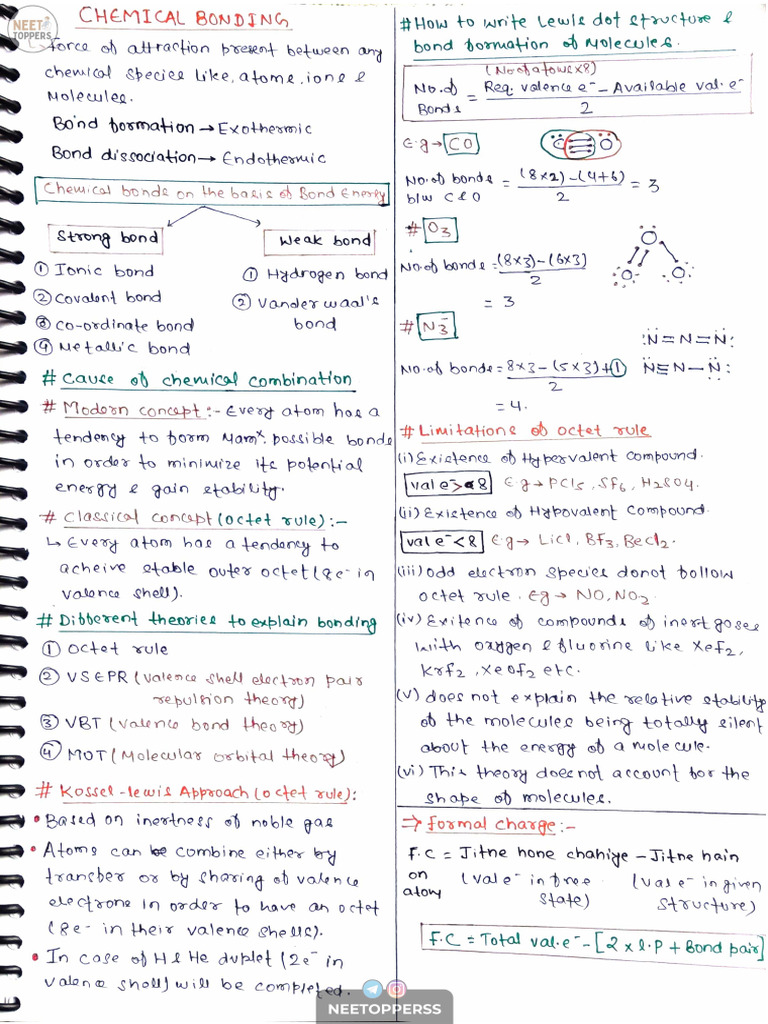 NEET
TOPPERS
CHEMICAL BONDING
Force of attraction present between any
chemical species like, atoms, ions &
Molecules.
Bond formation → Exothermic
Bond dissociation → Endothermic
Chemical bonds on the basis of Bond Energy
Strong bond
Weak bond
① Ionic bond
② Covalent bond
③ Co-ordinate bond
④ Metallic bond
① Hydrogen bond
② Vander waal's
bond
# Cause of chemical combination
# Modern concept :- Every atom has a
tendency to form Mamˣ. possible bonds
in order to minimize its potential
energy & gain stability.
# Classical concept (octet rule) :-
↳ Every atom has a tendency to
acheive stable outer octet (8e⁻ in
valence shell).
# Different theories to explain bonding
① Octet rule
② VSEPR (valence shell electron pair
repulsion theory)
③ VBT (valence bond theory)
④ MOT (Molecular orbital theory)
# Kossel-lewis Approach (octet rule):
• Based on inertness of noble gas
• Atoms can be combine either by
transfer or by sharing of valence
electrons in order to have an octet
(8e⁻ in their valence shells).
• In case of H & He duplet (2e⁻ in
valence shell) will be completed.
# How to write Lewis dot structure &
bond formation of Molecules.
(No. of atoms x 8)
No. of Bonds = Req. valence e⁻ - Available val. e⁻
2
E.g → CO
C O
No. of bonds = (8x2) - (4+6) = 3
b/w C & O 2
# O₃
No. of bonds = (8x3) - (6x3)
2
= 3
O
O O
# N₃⁻
:N = N = N:
No. of bonds = 8x3 - (5x3) + ①
2
N ≡ N — N:
= 4.
# Limitations of octet rule
(i) Existence of Hypervalent compound.
val e⁻ > 8 E.g → PCl₅, SF₆, H₂SO₄.
(ii) Existence of Hypovalent Compound.
val e⁻ < 8 E.g → LiCl, BF₃, BeCl₂.
(iii) odd electron species donot follow
octet rule. Eg → NO, NO₂.
(iv) Exitence of compounds of inert gases
with oxygen & fluorine like XeF₂,
KrF₂, XeOF₂ etc.
(v) does not explain the relative stability
of the molecules being totally silent
about the energy of a molecule.
(vi) This theory does not account for the
shape of molecules.
⇒ Formal charge :-
F.C = Jitne hone chahiye - Jitne hain
on atom (val e⁻ in free (val e⁻ in given
state) structure)
F.C = Total val. e⁻ - [2 x l.P + Bond pair]
NEETOPPERSS